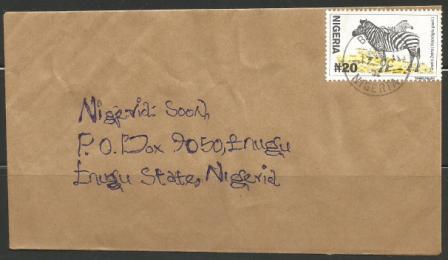 NIGERIA
₦20
NIGERIA
Nigeria: Soon,
P.O. Box 9050, Enugu
Enugu State, Nigeria